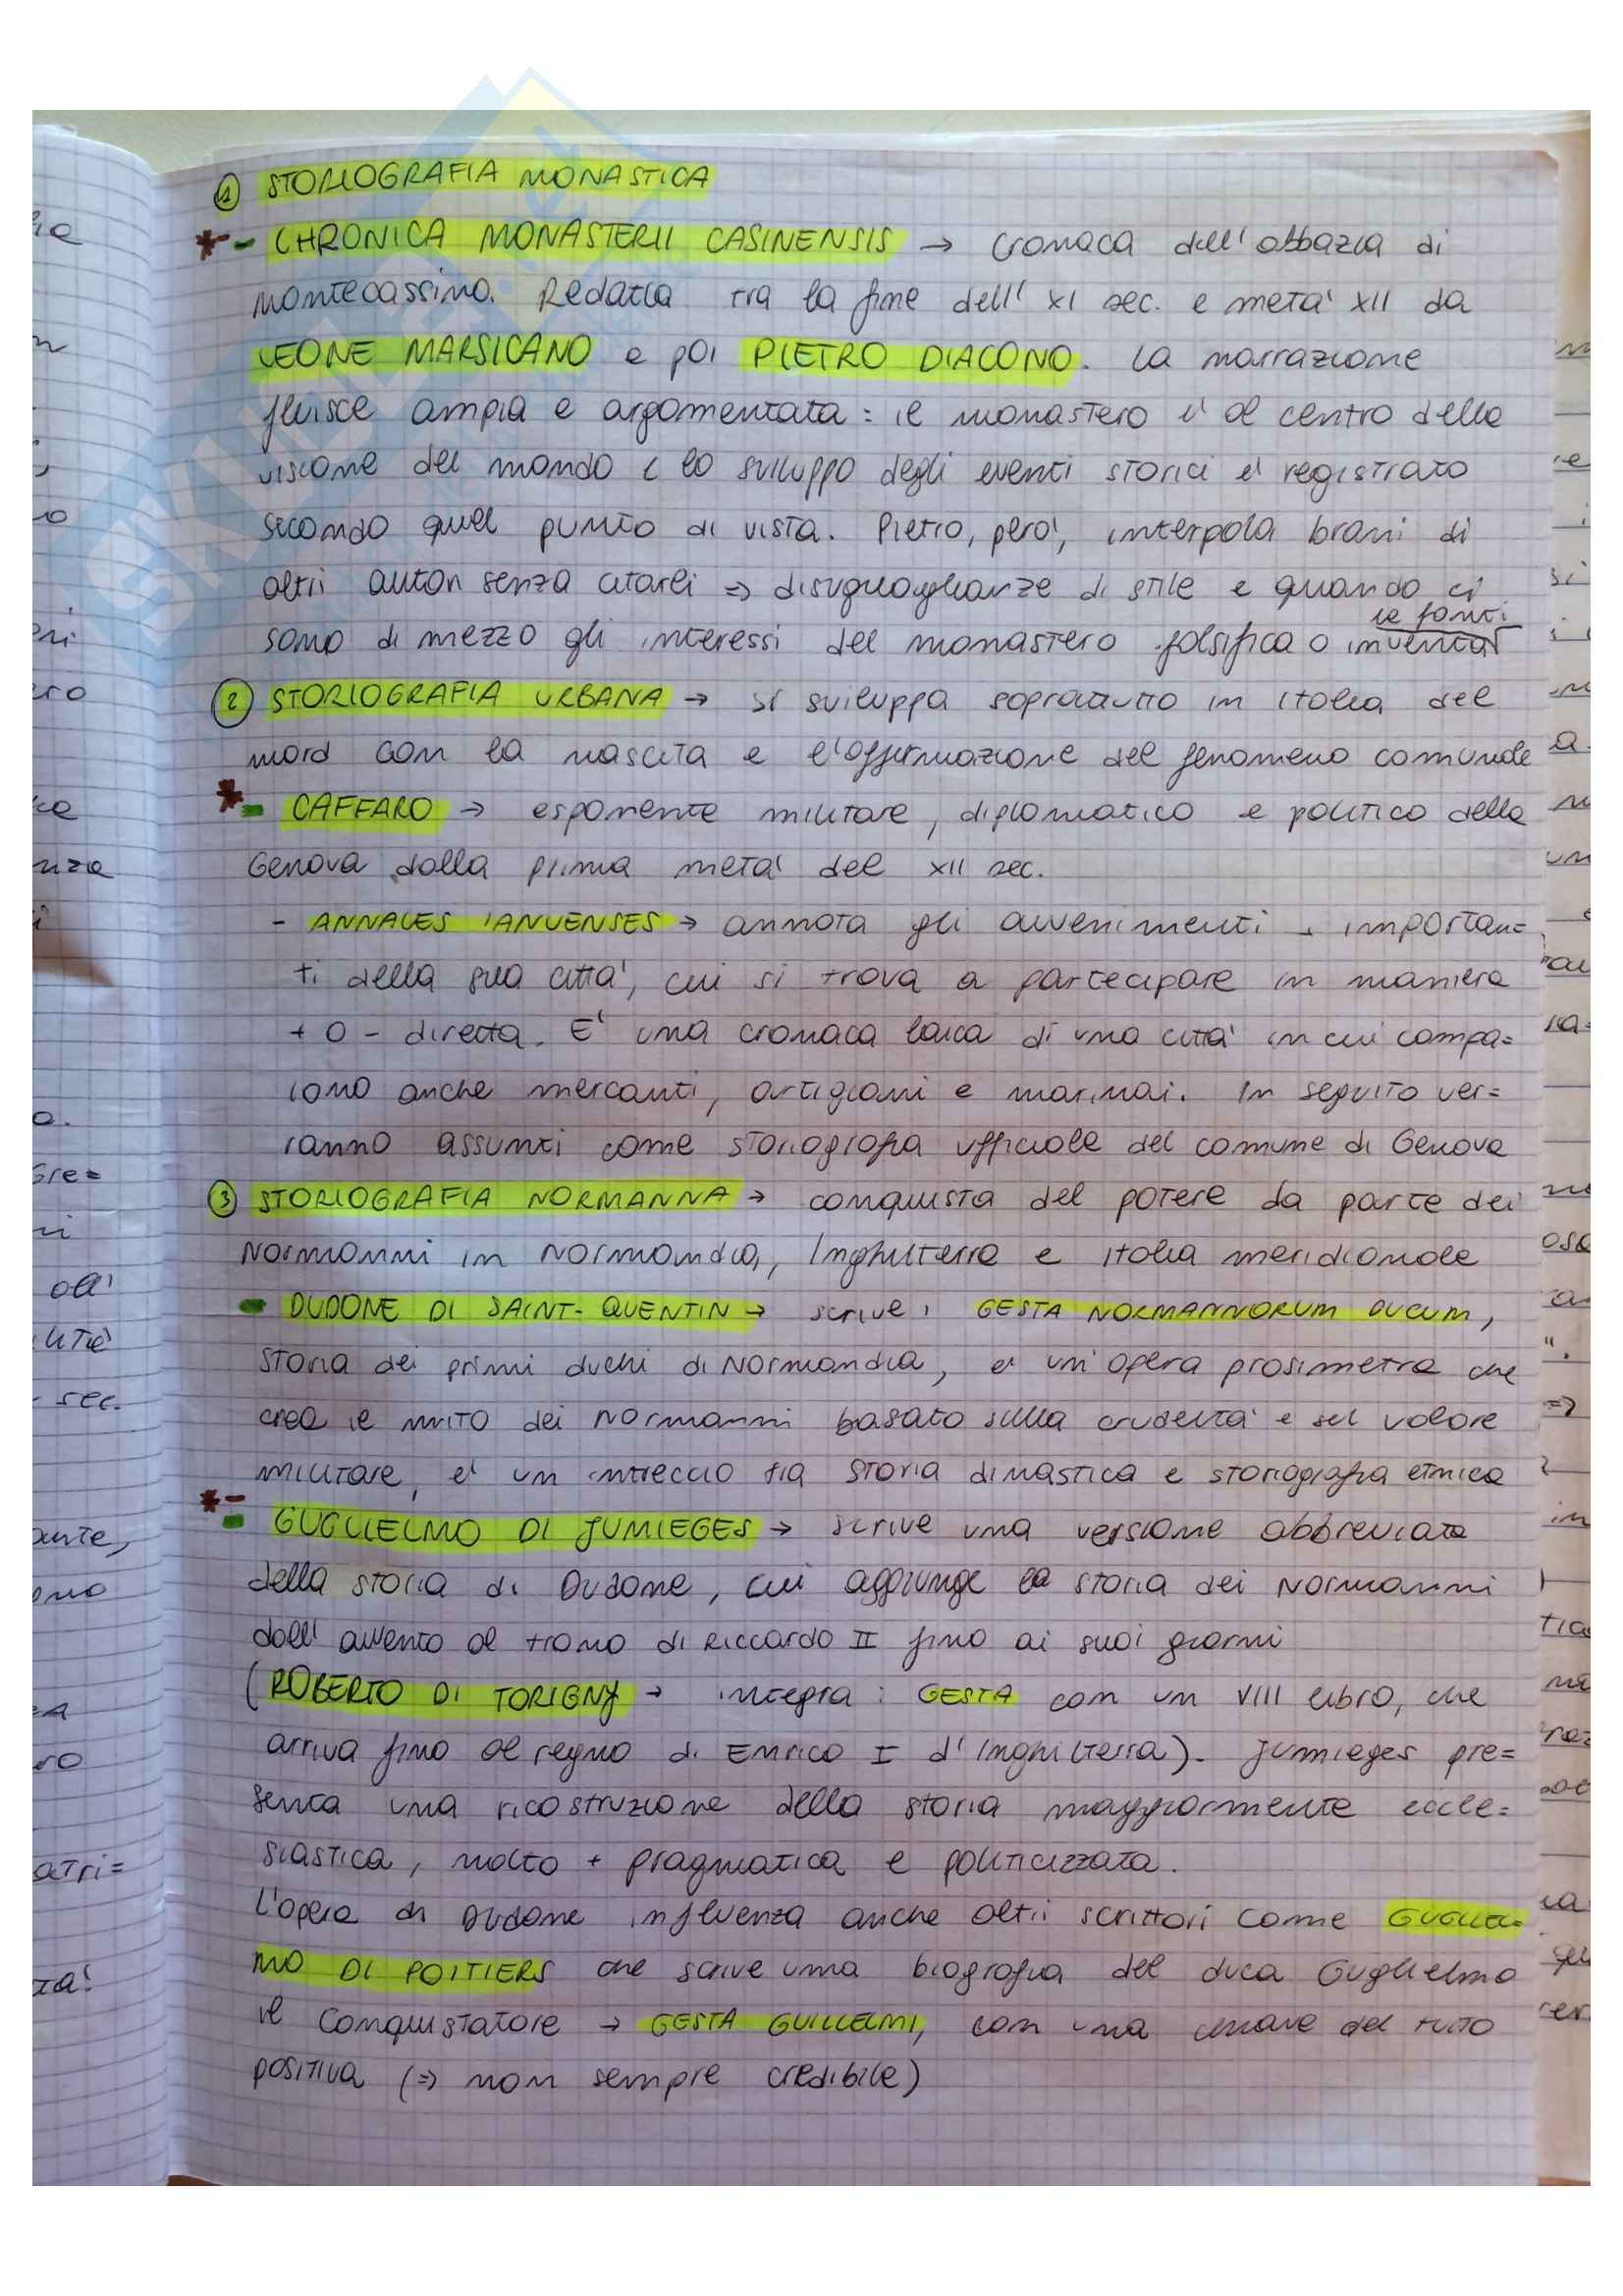 ① STORIOGRAFIA MONASTICA
*- CHRONICA MONASTERII CASINENSIS → cronaca dell'abbazia di
Montecassino. Redatta tra la fine dell'XI sec. e metà XII da
LEONE MARSICANO e poi PIETRO DIACONO. La narrazione
fluisce ampia e argomentata: il monastero è al centro della
visione del mondo e lo sviluppo degli eventi storici è registrato
secondo quel punto di vista. Pietro, però, interpola brani di
altri autori senza citarli => disuguaglianze di stile e quando ci
sono di mezzo gli interessi del monastero falsifica o inventa
le fonti
② STORIOGRAFIA URBANA → si sviluppa sopratutto in Italia del
nord con la nascita e l'affermazione del fenomeno comunale
*- CAFFARO → esponente militare, diplomatico e politico della
Genova dalla prima metà del XII sec.
- ANNALES IANUENSES → annota gli avvenimenti + importan=
ti della sua città, cui si trova a partecipare in maniera
+ o - diretta. E' una cronaca laica di una città in cui compa=
iono anche mercanti, artigiani e marinai. In seguito ver=
ranno assunti come storiografia ufficiale del comune di Genova
③ STORIOGRAFIA NORMANNA → conquista del potere da parte dei
Normanni in Normandia, Inghilterra e Italia meridionale
- DUDONE DI SAINT-QUENTIN → scrive i GESTA NORMANNORUM DUCUM,
storia dei primi duchi di Normandia, è un'opera prosimetra che
crea il mito dei Normanni basato sulla crudeltà e sul valore
militare, è un intreccio fra storia dinastica e storiografia etnica
*- GUGLIELMO DI JUMIEGES → scrive una versione abbreviata
della storia di Dudone, cui aggiunge la storia dei Normanni
dall'avvento al trono di Riccardo II fino ai suoi giorni
(ROBERTO DI TORIGNY → integra i GESTA con un VIII libro, che
arriva fino al regno di Enrico I d'Inghilterra). Jumieges pre=
senta una ricostruzione della storia maggiormente eccle=
siastica, molto + pragmatica e politicizzata.
L'opera di Dudone influenza anche altri scrittori come GUGLIEL=
MO DI POITIERS che scrive una biografia del duca Guglielmo
il Conquistatore → GESTA GUILLELMI, con una chiave del tutto
positiva (=> non sempre credibile)